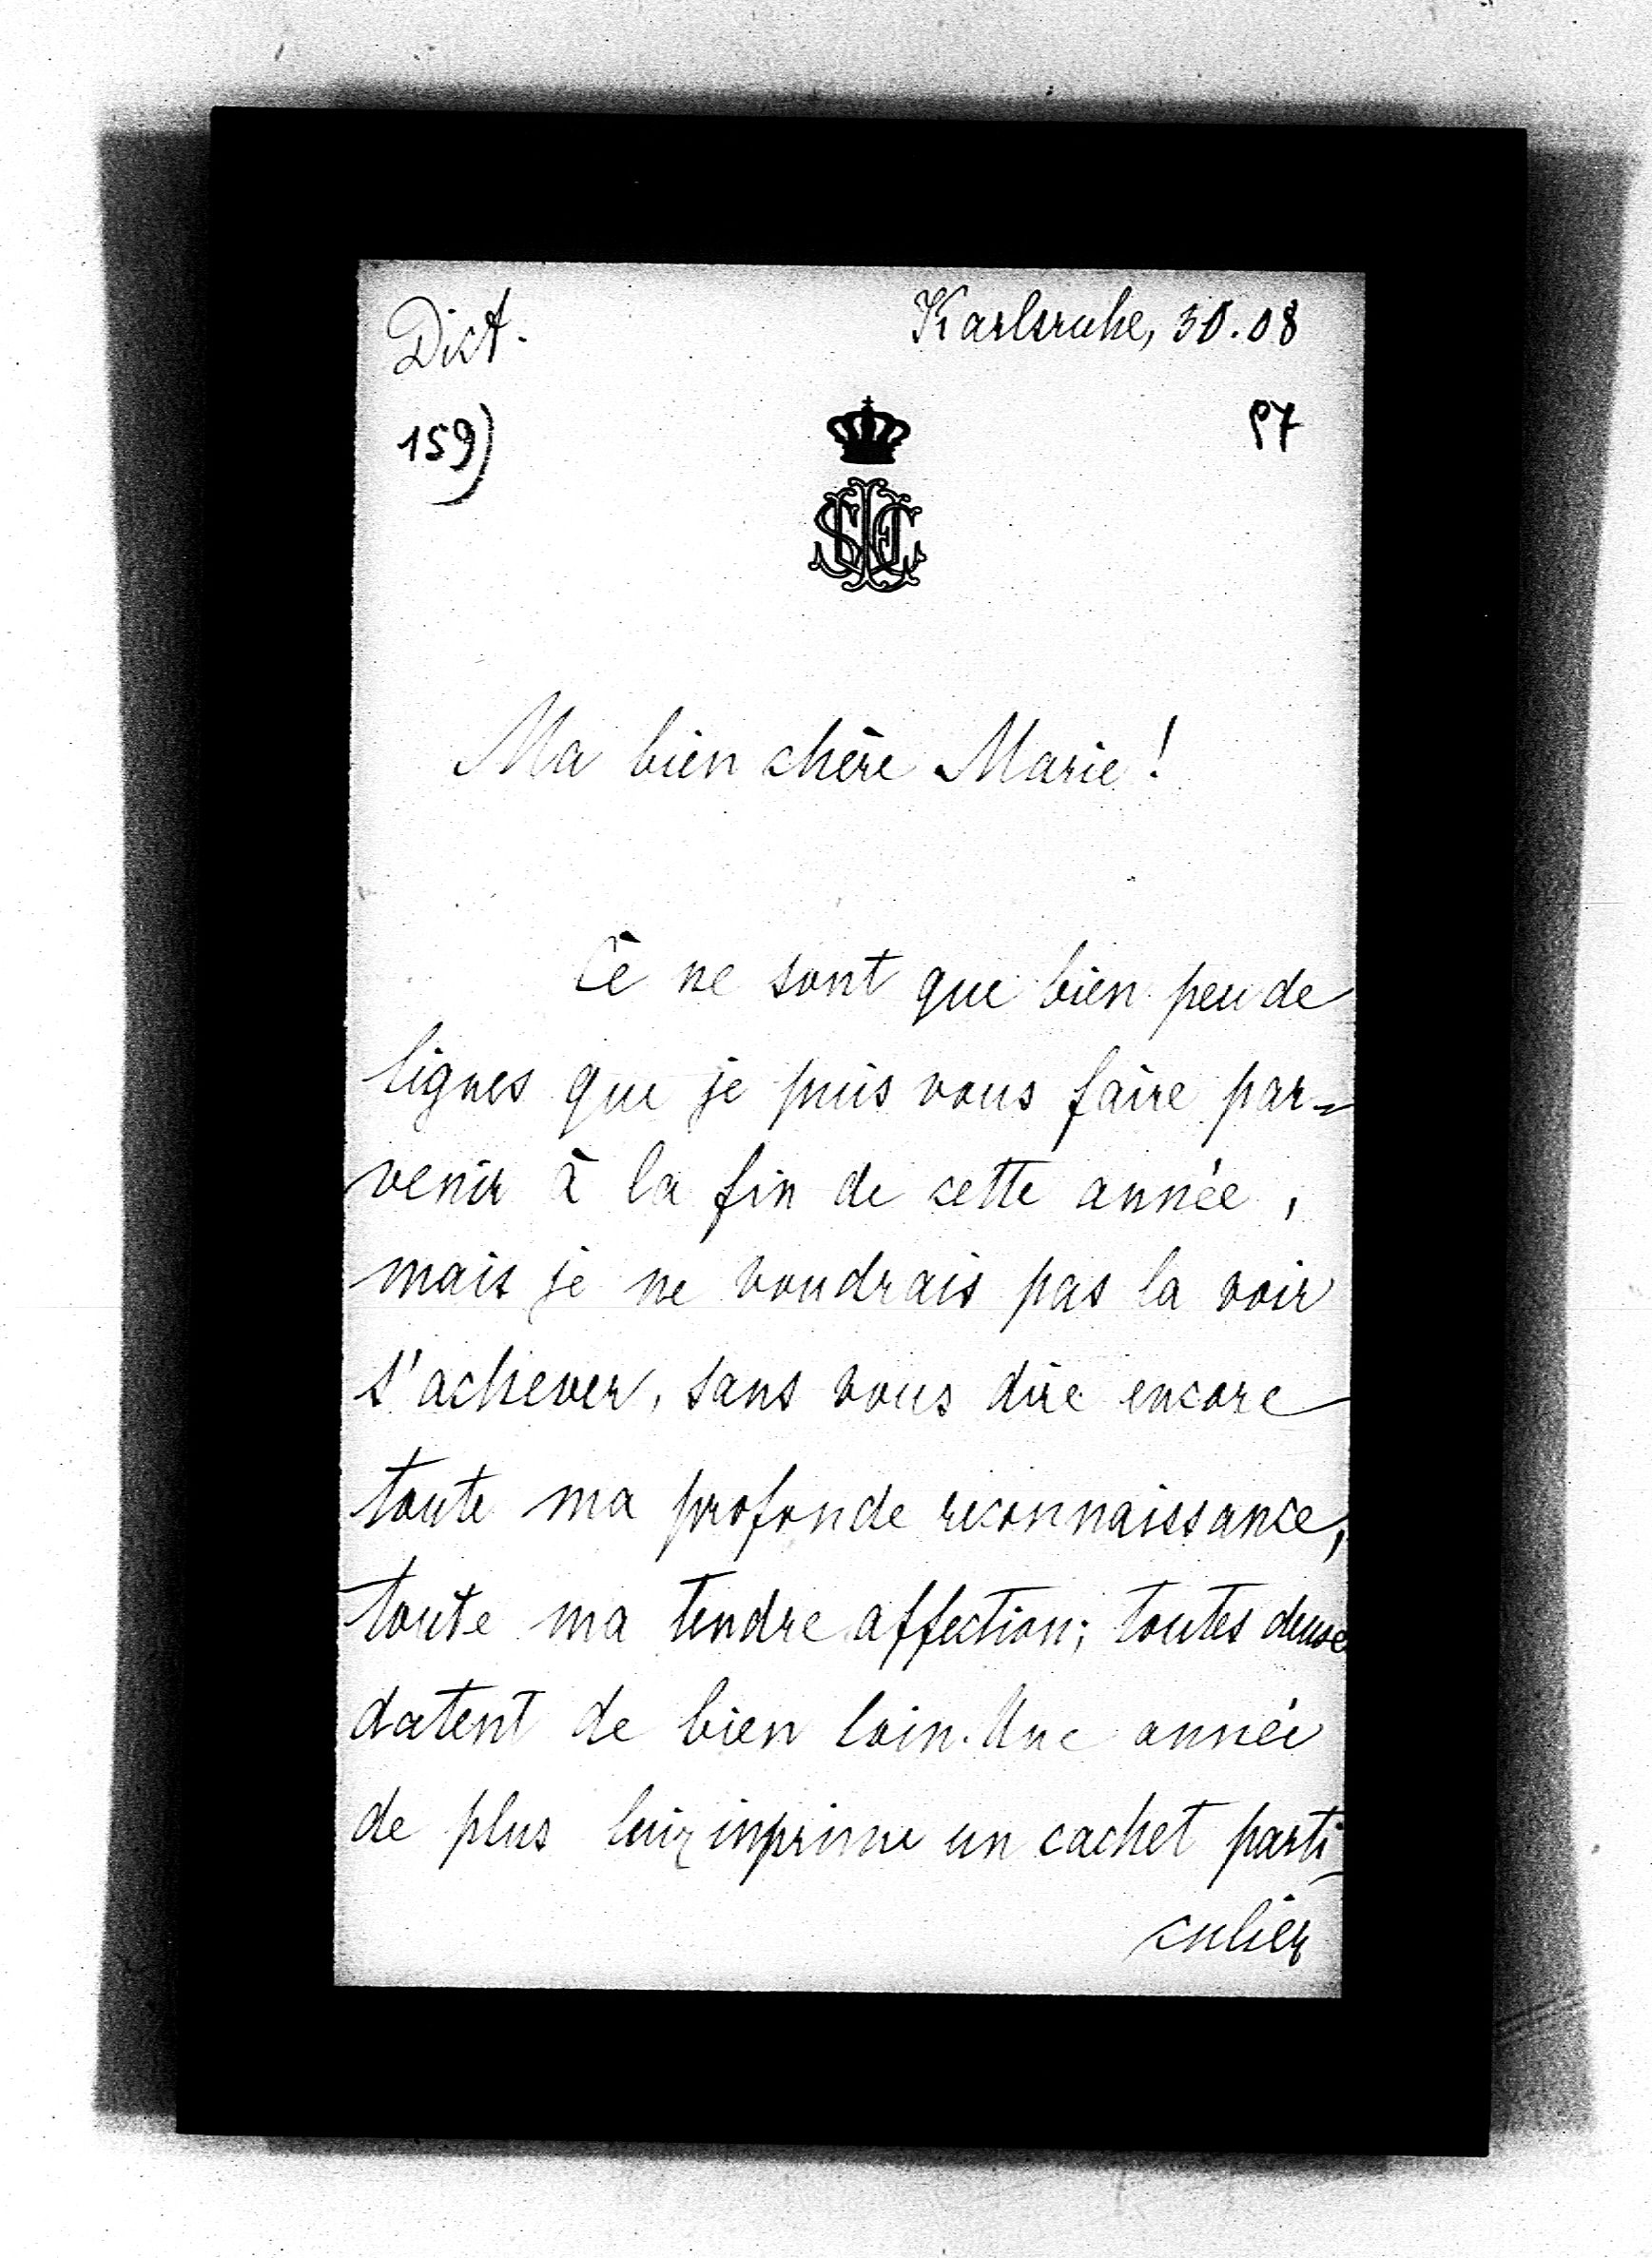 Dict. Karlsruhe, 30.08
159) 97
Ma bien chère Marie!
Ce ne sont que bien peu de
lignes que je puis vous faire par-
venir à la fin de cette année,
mais je ne voudrais pas la voir
s'achever, sans vous dire encore
toute ma profonde reconnaissance,
toute ma tendre affection; toutes deux
datent de bien loin. Une année
de plus leur imprime un cachet parti-
culier